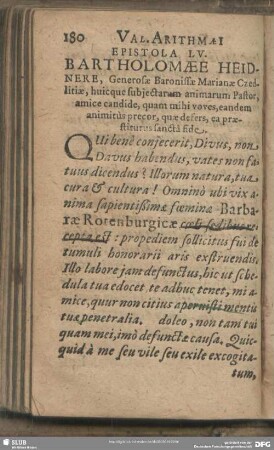 180 VAL. ARITHMÆI
EPISTOLA LV.
BARTHOLOMÆE HEID-
NERE, Generosæ Baronissæ Marianæ Czed-
litiæ, huicque subjectarum animarum Pastor,
amice candide, quam mihi voves, eandem
animitùs precor, quæ defers, ea præ-
stiturus sanctâ fide.
QUi benè conjecerit, Divus, non
Davus habendus, vates non fa-
tuus dicendus? Illorum natura, tua
cura & cultura! Omninò ubi vix a-
nima sapientissimæ fœminæ Barba-
ræ Rotenburgicæ cœli sedibus re-
cepta est: propediem sollicitus fui de
tumuli honorarii aris exstruendis.
Illo labore jam defunctus, hic ut sche-
dula tua edocet te adhuc tenet, mi a-
mice, quur non citius aperuisti mentis
tuæ penetralia. doleo, non tam tui
quam mei, imò defunctæ causa. Quic-
quid à me seu vile seu exile excogita-
tum,
SLUB
DFG